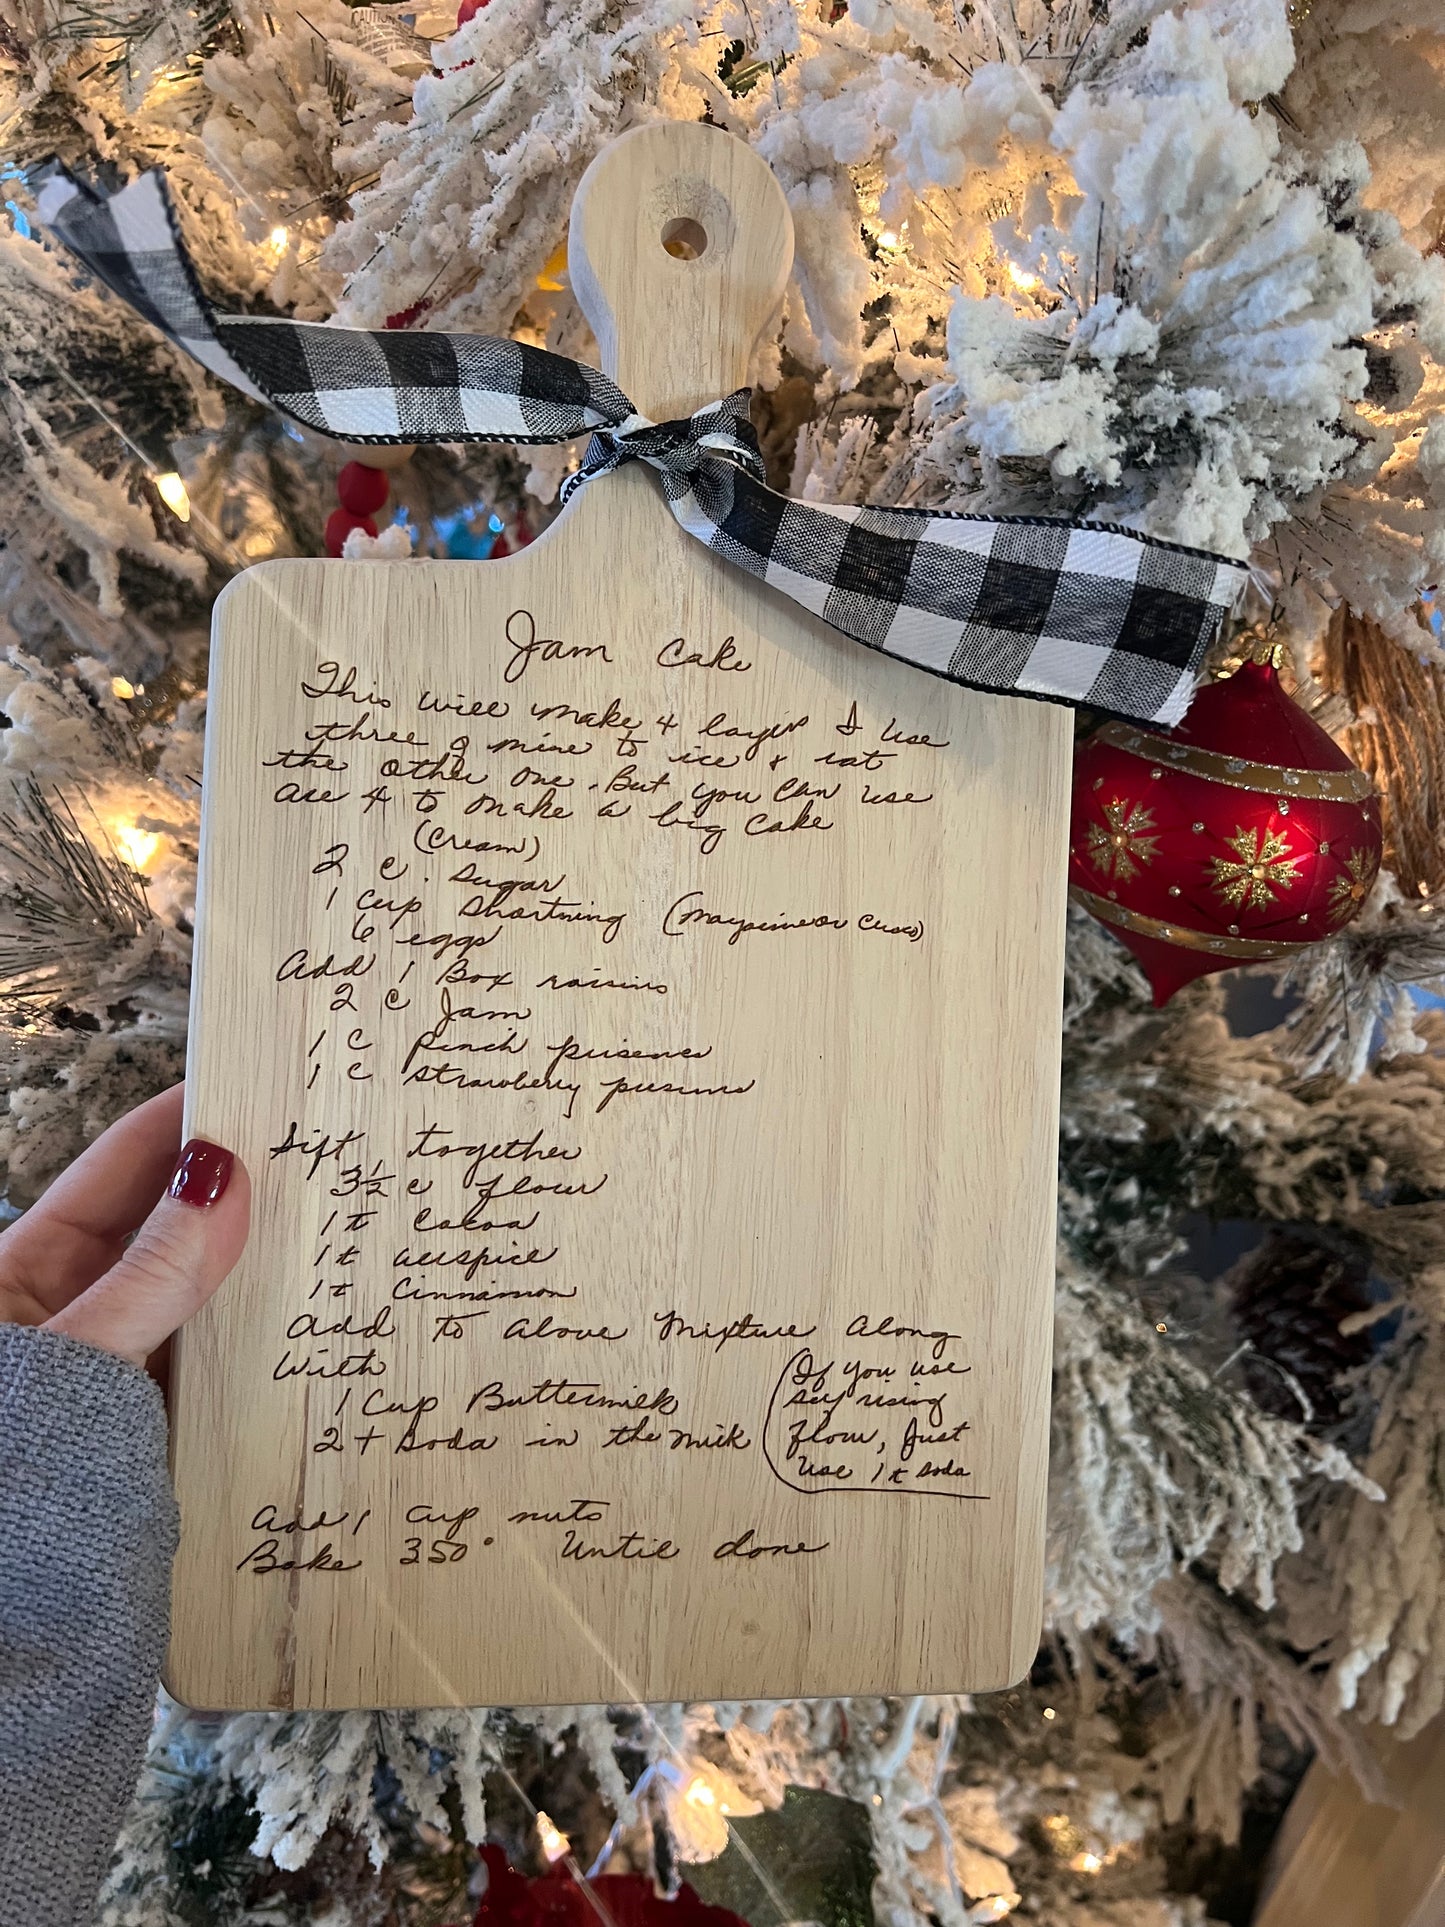 CAUTION
Jam Cake
This will make 4 layers I use
three of mine to ice & eat
the other one. But you can use
all 4 to make a big cake
(Cream)
2 c. sugar
1 cup Shortning (Maysine or Crisco)
6 eggs
Add 1 Box raisins
2 c Jam
1 c Peach preserves
1 c strawberry preserves
Sift together
3½ c flour
1 t cocoa
1 t allspice
1 t Cinnamon
Add to above mixture along
with
1 Cup Buttermilk
2 t soda in the milk
(If you use
self rising
flour, just
use 1 t soda
Add 1 cup nuts
Bake 350° until done